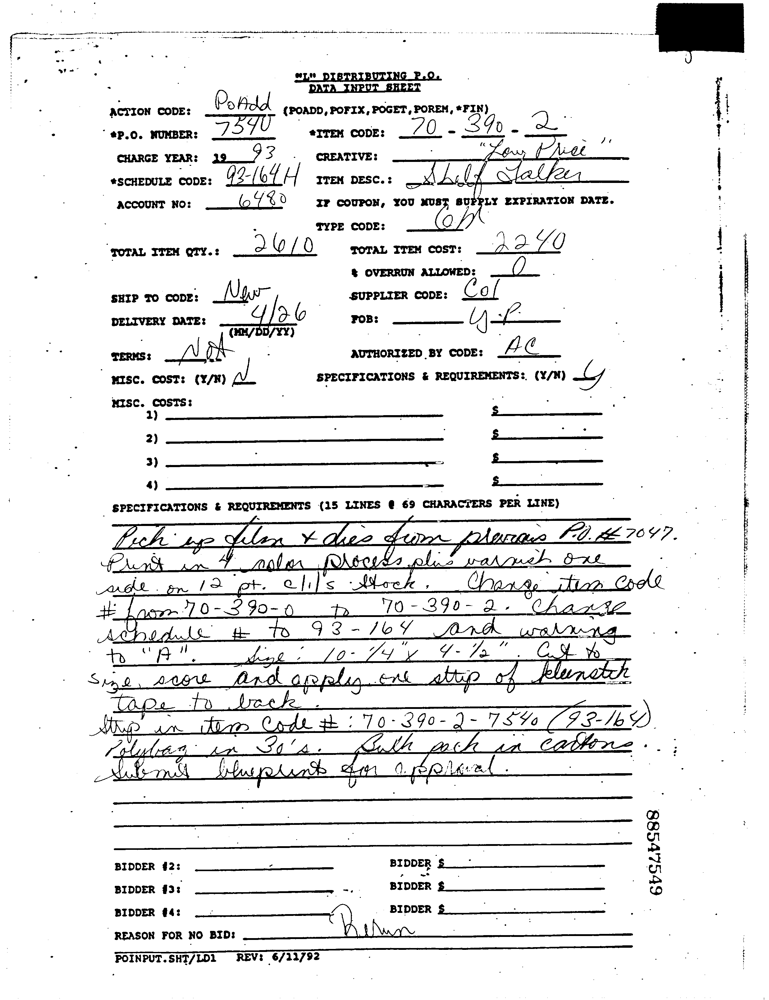 "L" DISTRIBUTING P.O.
DATA INPUT SHEET
ACTION CODE: PoAdd (POADD, POFIX, POGET, POREM, *FIN)
*P.O. NUMBER: 7540 *ITEM CODE: 70 - 390 - 2
CHARGE YEAR: 19 93 CREATIVE: "Low Price"
*SCHEDULE CODE: 93-164H ITEM DESC.: Shelf Talker
ACCOUNT NO: 6480 IF COUPON, YOU MUST SUPPLY EXPIRATION DATE.
TYPE CODE:
TOTAL ITEM QTY.: 2610 TOTAL ITEM COST: 2240
% OVERRUN ALLOWED: 0
SHIP TO CODE: New SUPPLIER CODE: Col
DELIVERY DATE: 4/26 FOB: Y.P.
(MM/DD/YY)
TERMS: AUTHORIZED BY CODE: AC
MISC. COST: (Y/N) N SPECIFICATIONS & REQUIREMENTS: (Y/N) Y
MISC. COSTS:
1) $
2) $
3) $
4) $
SPECIFICATIONS & REQUIREMENTS (15 LINES @ 69 CHARACTERS PER LINE)
Pick up film & dies from previous P.O. # 7047.
Print in 4 color process plus varnish one
side on 12 pt. c/1/s stock. Change item code
# from 70-390-0 to 70-390-2. Change
schedule # to 93-164 and warning
to "A". Size: 10-1/4" x 4-1/2". Cut to
size, score and apply one strip of kleenstik
tape to back.
Strip in item code #: 70-390-2-7540 (93-164)
Polybag in 30's. Bulk pack in cartons.
Submit blueprint for approval.
BIDDER #2: BIDDER $
BIDDER #3: BIDDER $
BIDDER #4: BIDDER $
REASON FOR NO BID: Rerun
POINPUT.SHT/LD1 REV: 6/11/92
88547549